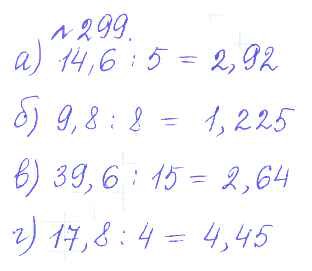 №299.
а) 14,6 : 5 = 2,92
б) 9,8 : 8 = 1,225
в) 39,6 : 15 = 2,64
г) 17,8 : 4 = 4,45